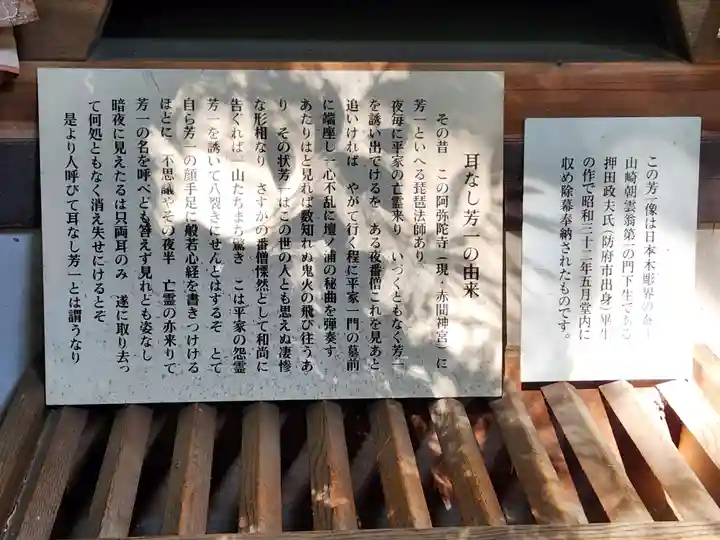 耳なし芳一の由来
その昔 この阿弥陀寺(現・赤間神宮)に
芳一といへる琵琶法師あり
夜毎に平家の亡霊来り いづくともなく芳一
を誘い出でけるを ある夜番僧これを見あと
追いければ やがて行く程に平家一門の墓前
に端座し一心不乱に壇ノ浦の秘曲を弾奏す
あたりはと見れば数知れぬ鬼火の飛び往うあ
り その状芳一はこの世の人とも思えぬ凄惨
な形相なり さすがの番僧慄然として和尚に
告ぐれば 一山たちまち驚き こは平家の怨霊
芳一を誘いて八裂きにせんとはするぞ とて
自ら芳一の顔手足に般若心経を書きつけける
ほどに 不思議やその夜半 亡霊の亦来りて
芳一の名を呼べども答えず見れども姿なし
暗夜に見えたるは只両耳のみ 遂に取り去っ
て何処ともなく消え失せにけるとぞ
是より人呼びて耳なし芳一とは謂うなり
この芳一像は日本木彫界の
山崎朝雲翁第一の門下生である
押田政夫氏(防府市出身)畢生
の作で昭和三十二年五月堂内に
収め除幕奉納されたものです。